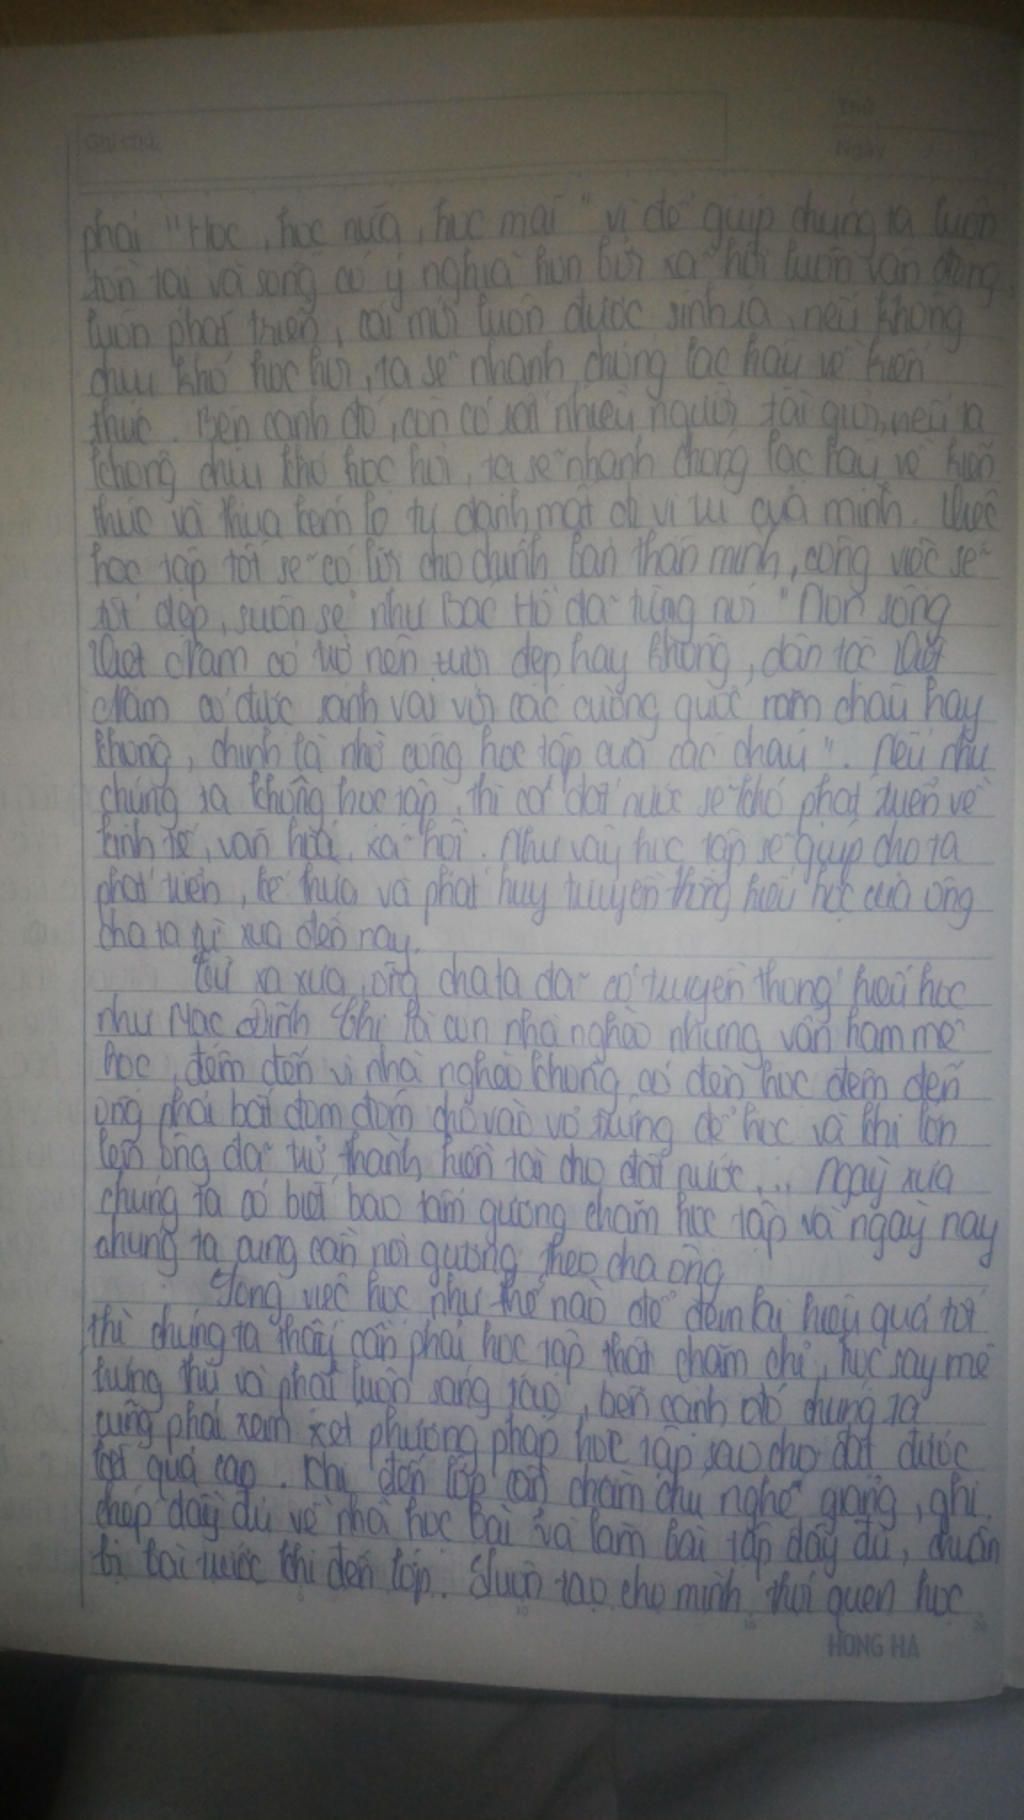 Ghi chú:
Thứ
Ngày
phải "Học, học nữa, học mãi" vì đó giúp chúng ta luôn
tồn tại và sống có ý nghĩa hơn bởi xã hội luôn vận động
luôn phát triển, cái mới luôn được sinh ra, nếu không
chịu khó học hỏi, ta sẽ nhanh chóng lạc hậu về kiến
thức. Bên cạnh đó, còn có rất nhiều người tài giỏi, nếu ta
không chịu khó học hỏi, ta sẽ nhanh chóng lạc hậu về kiến
thức và thua kém họ tự đánh mất đi vị trí của mình. Việc
học tập tốt sẽ có lợi cho chính bản thân mình, công việc sẽ
tốt đẹp, suôn sẻ như Bác Hồ đã từng nói "Non sông
Việt Nam có trở nên tươi đẹp hay không, dân tộc Việt
Nam có được sánh vai với các cường quốc năm châu hay
không, chính là nhờ công học tập của các cháu". Nếu như
chúng ta không học tập, thì cả đất nước sẽ khó phát triển về
kinh tế, văn hoá, xã hội. Như vậy học tập sẽ giúp cho ta
phát triển, kế thừa và phát huy truyền thống hiếu học của ông
cha ta từ xưa đến nay.
Từ xa xưa, ông cha ta đã có truyền thống hiếu học
như Mạc Đĩnh Chi là con nhà nghèo nhưng vẫn ham mê
học, đêm đến vì nhà nghèo không có đèn học đêm đến
ông phải bắt đom đóm cho vào vỏ trứng để học và khi lớn
lên ông đã trở thành hiền tài cho đất nước... Ngày xưa
chúng ta có biết bao tấm gương chăm học tập và ngày nay
chúng ta cũng cần noi gương theo cha ông
Trong việc học như thế nào để đem lại hiệu quả tốt
thì chúng ta thấy cần phải học tập thật chăm chỉ, học say mê
hứng thú và phải luôn sáng tạo, bên cạnh đó chúng ta
cũng phải xem xét phương pháp học tập sao cho đạt được
kết quả cao. Khi đến lớp cần chăm chú nghe giảng, ghi
chép đầy đủ về nhà học bài và làm bài tập đầy đủ, chuẩn
bị bài trước khi đến lớp. Luôn tạo cho mình thói quen học
HONG HA